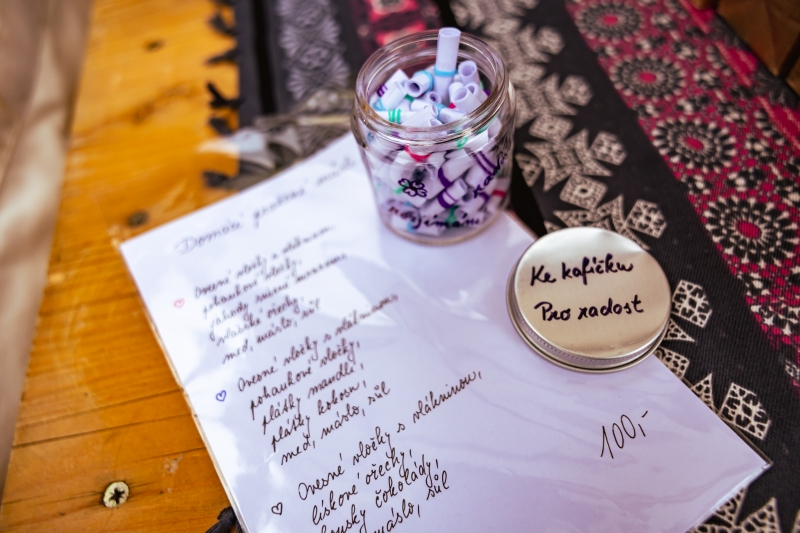 Domácí
Ovesné vločky s vlákninou
pohankové vločky,
vlašské ořechy,
med, máslo, sůl
Ovesné vločky s vlákninou,
pohankové vločky,
plátky mandlí,
plátky kokosu,
med, máslo, sůl
Ovesné vločky s vlákninou,
lískové ořechy,
kousky čokolády,
máslo, sůl
Ke kafíčku
Pro radost
100,-